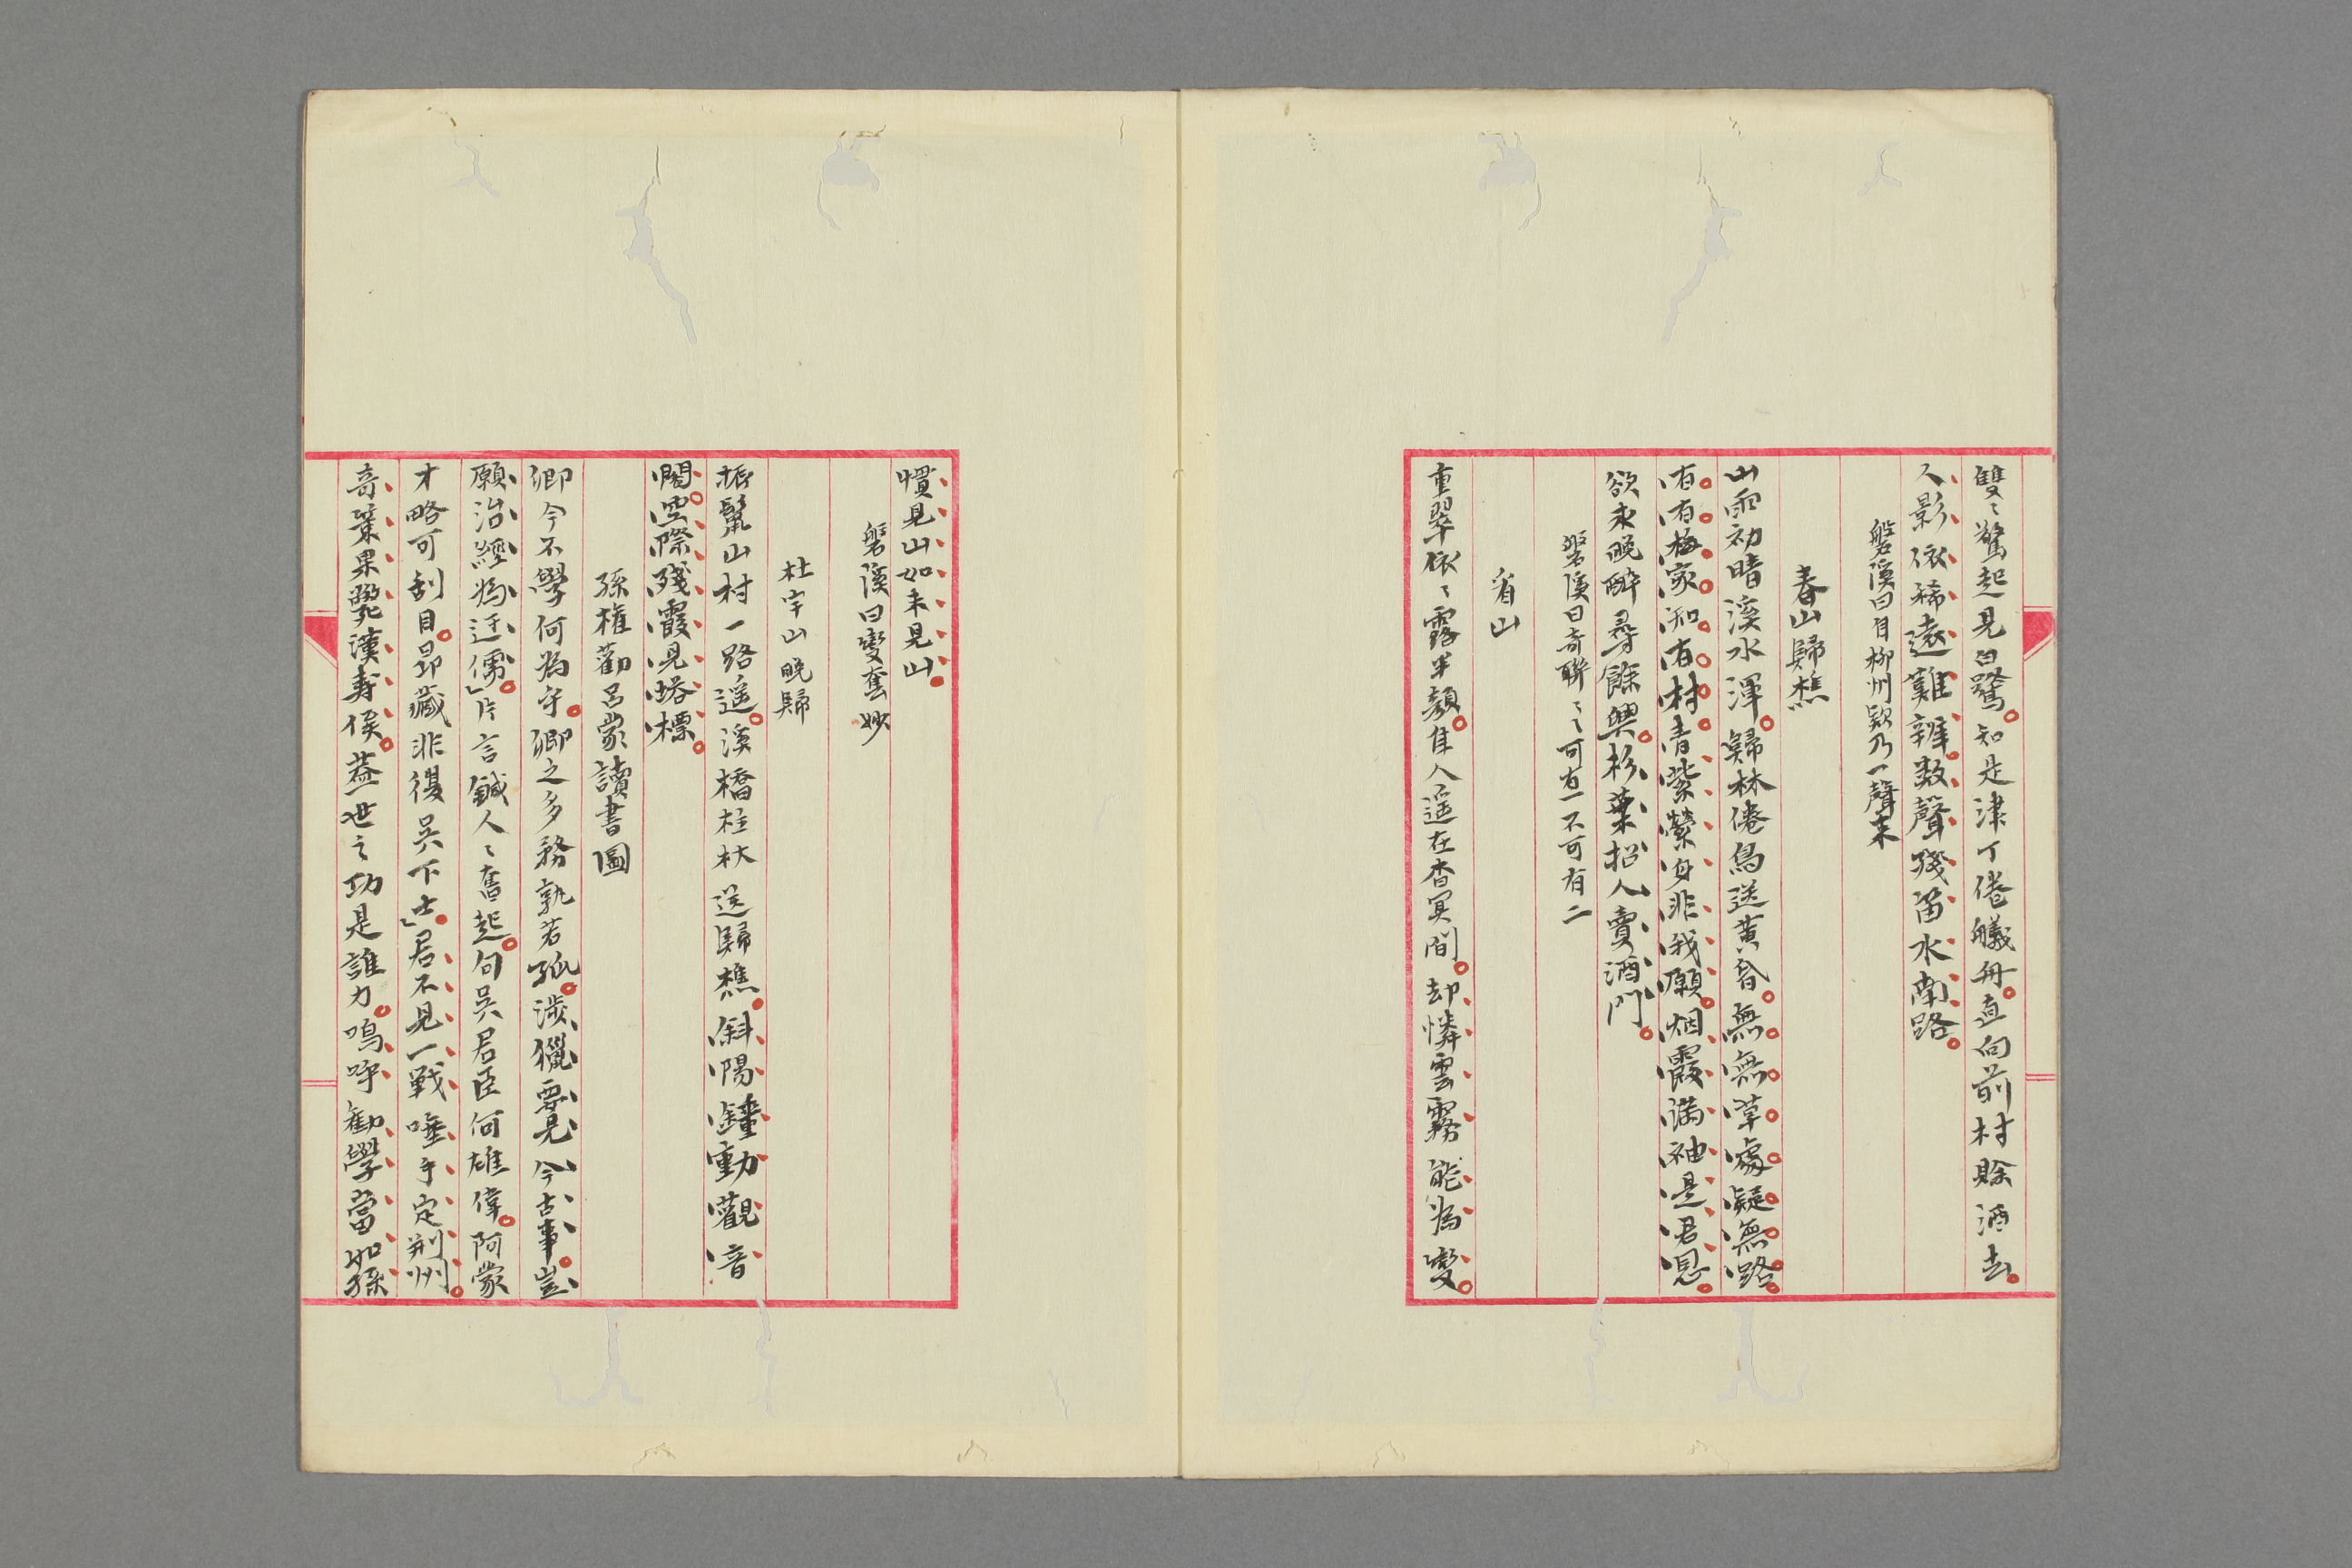 雙〻驚起見白鷺知是津丁倦艤舟直向前村賒酒去
人影依稀遠難辨数聲殘笛水南路
磐溪曰自柳州欸乃一聲来
春山歸樵
山雨初晴溪水渾歸林倦鳥送黄昏無無草處疑無路
有有梅家知有村青紫縈身非我願烟霞満袖是君恩
欲求晩醉尋餘興杉葉招人賣酒門
磐溪曰奇聯〻〻可有一不可有二
看山
重翠依〻露半顔隹人遥在杳冥間却憐雲霧能為變
慣見山如未見山
磐溪曰變奮妙
杜宇山晩歸
振鬣山村一路遥溪橋柱杖送歸樵斜陽鐘動觀音
閣空際殘霞見塔標
孫権勸呂蒙讀書圖
卿今不學何為乎卿之多務孰若孤渉獵要見今古事豈
願治經為迂儒」片言鍼人〻奮起句吳君臣何雄偉阿蒙
才略可刮目昂藏非復吳下士」君不見一戰唾手定荊州
奇策果斃漢寿侯蓋世之功是誰力嗚呼勸學當如孫